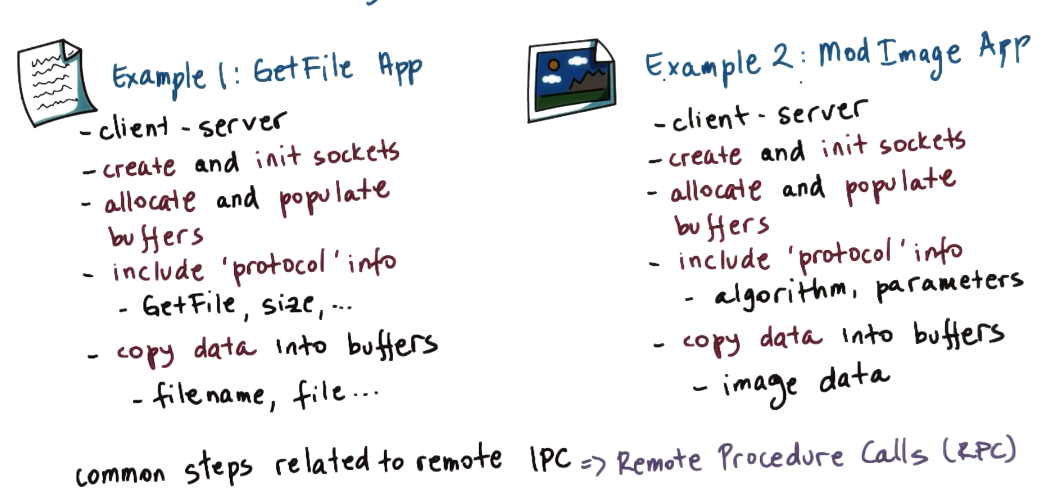 Example 1: GetFile App
- client-server
- create and init sockets
- allocate and populate
buffers
- include 'protocol' info
- GetFile, size, ...
- copy data into buffers
- filename, file...
Example 2: Mod Image App
- client-server
- create and init sockets
- allocate and populate
buffers
- include 'protocol' info
- algorithm, parameters
- copy data into buffers
- image data
common steps related to remote IPC => Remote Procedure Calls (RPC)